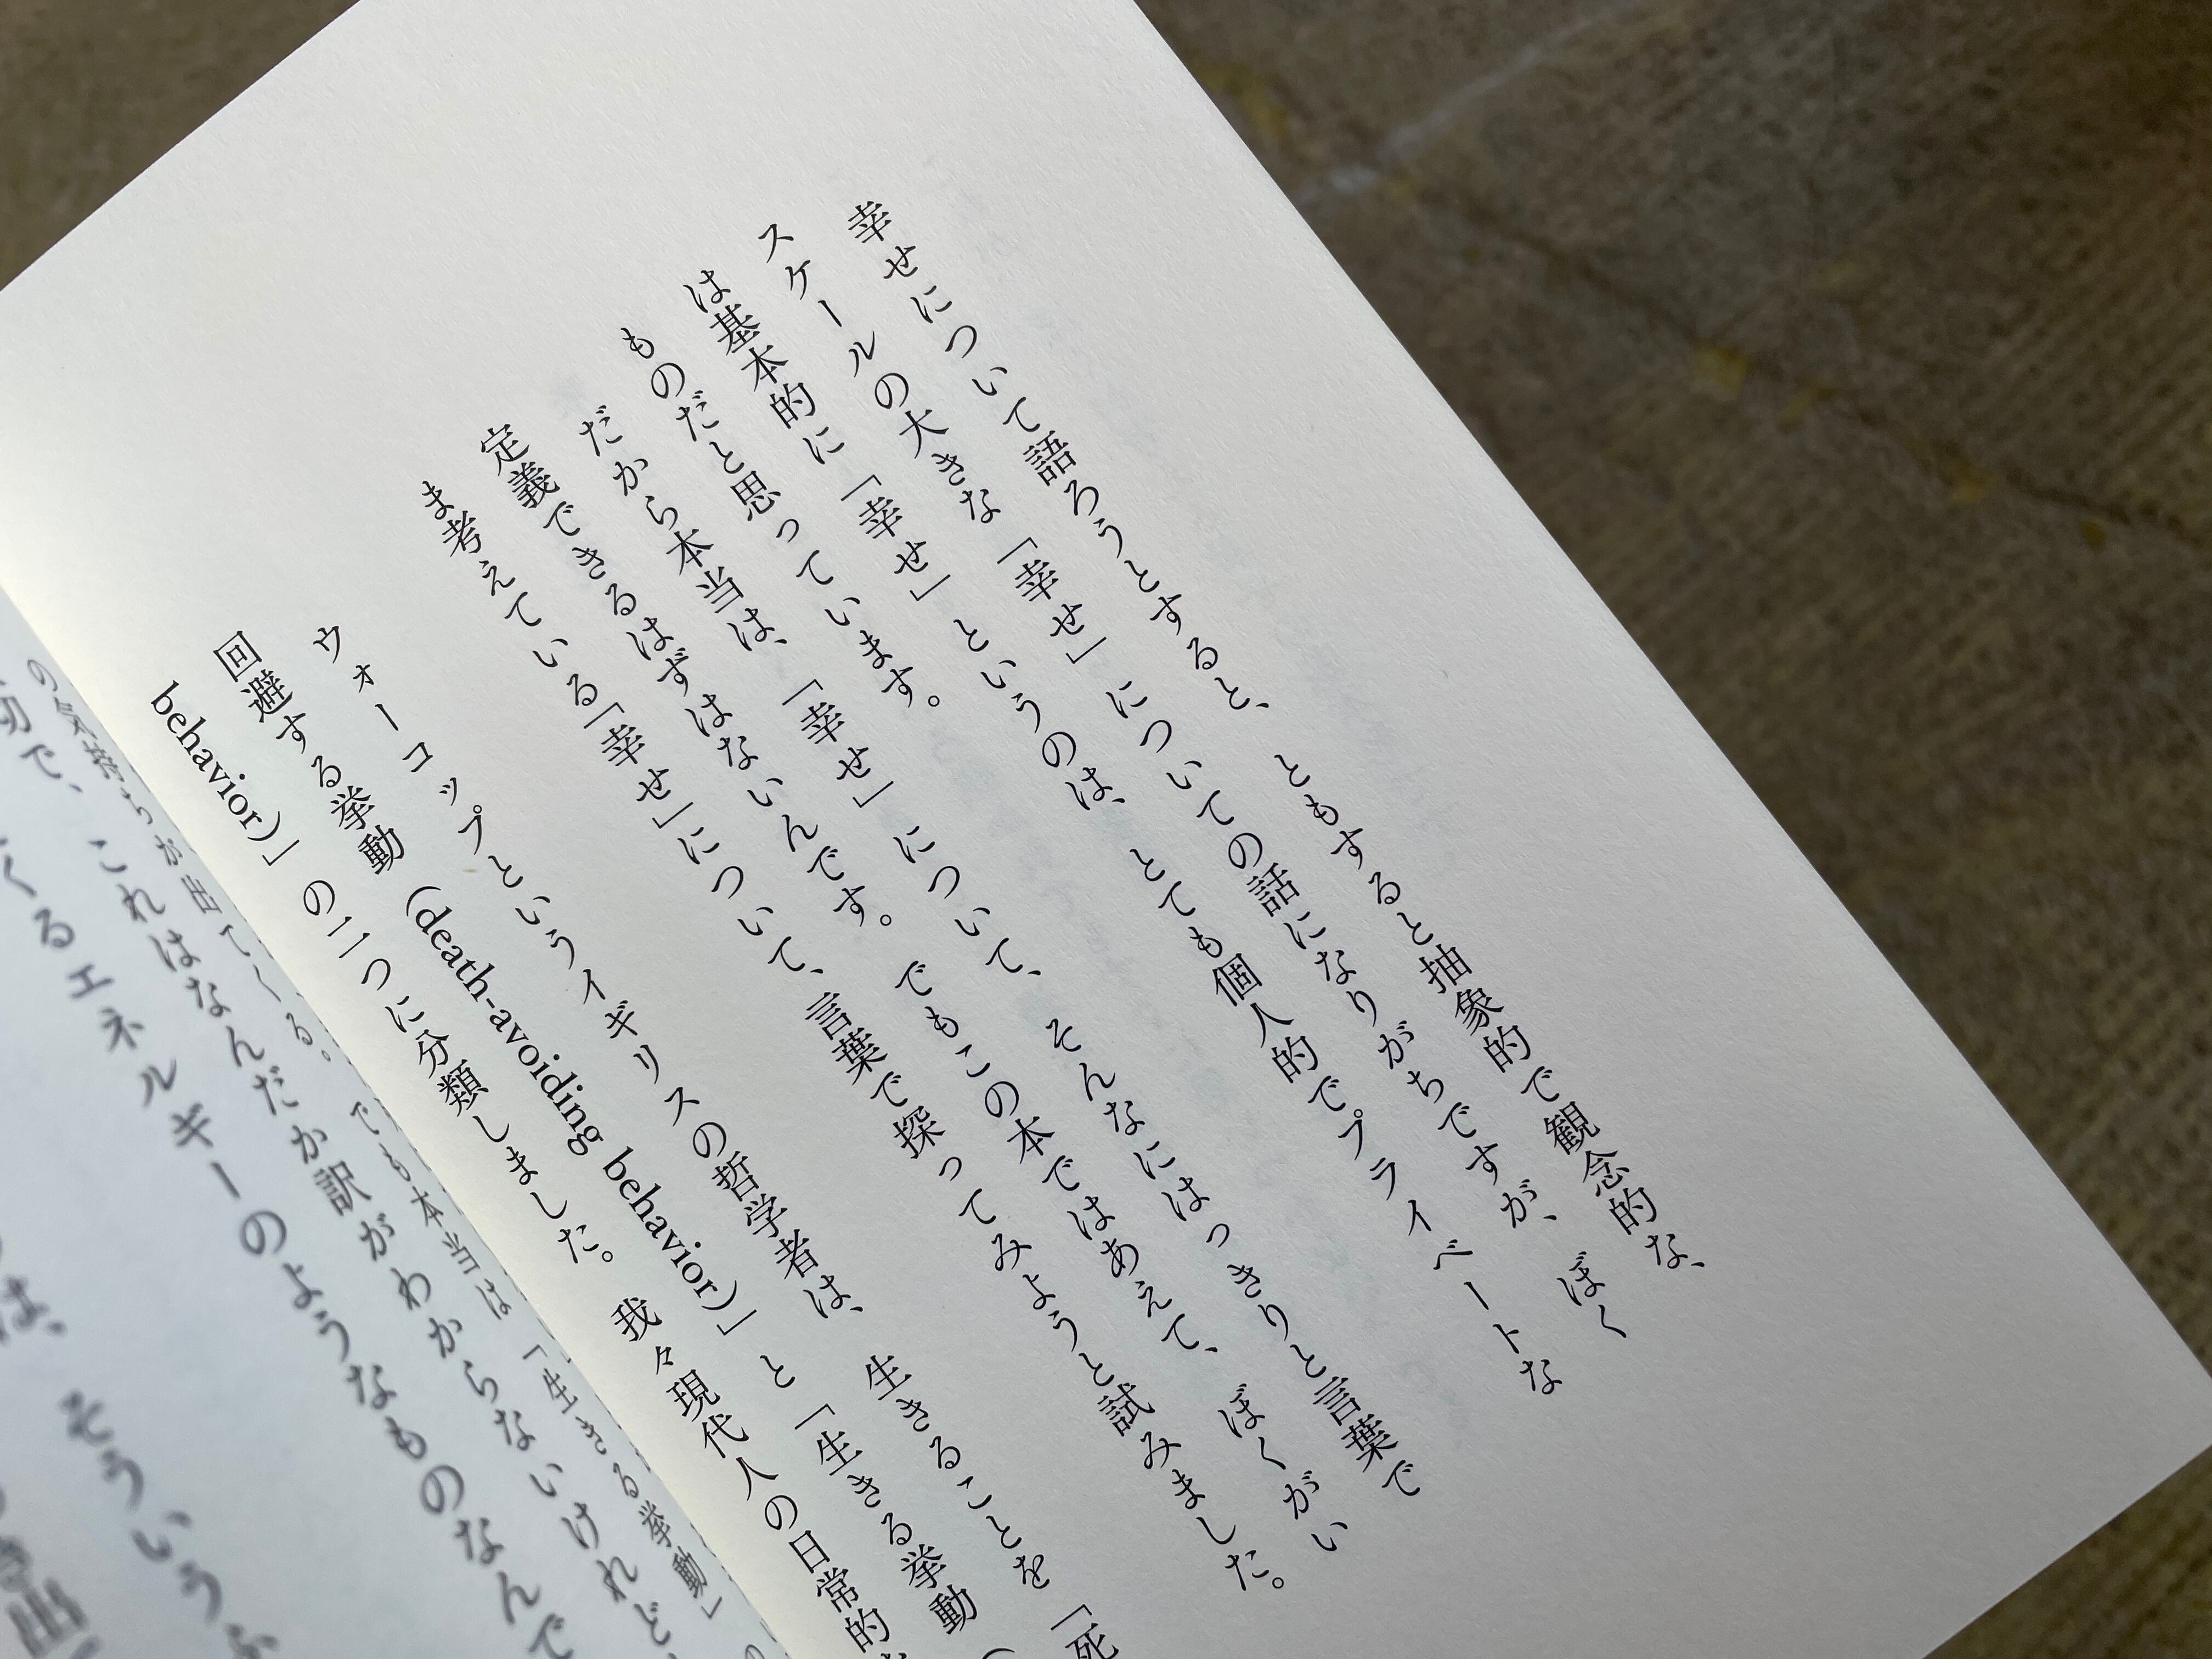 幸せについて語ろうとすると、ともすると抽象的で観念的な、
スケールの大きな「幸せ」についての話になりがちですが、ぼく
は基本的に「幸せ」というのは、とても個人的でプライベートな
ものだと思っています。
だから本当は、「幸せ」について、そんなにはっきりと言葉で
定義できるはずはないんです。でもこの本ではあえて、ぼくがい
ま考えている「幸せ」について、言葉で探ってみようと試みました。
ウォーコップというイギリスの哲学者は、生きることを「死
回避する挙動（death-avoiding behavior）」と「生きる挙動（
behavior）」の二つに分類しました。我々現代人の日常的
の気持ちが出てくる。でも本当は「生きる挙動」
動で、これはなんだか訳がわからないけれど
くるエネルギーのようなものなんで
は、そういうふ
出